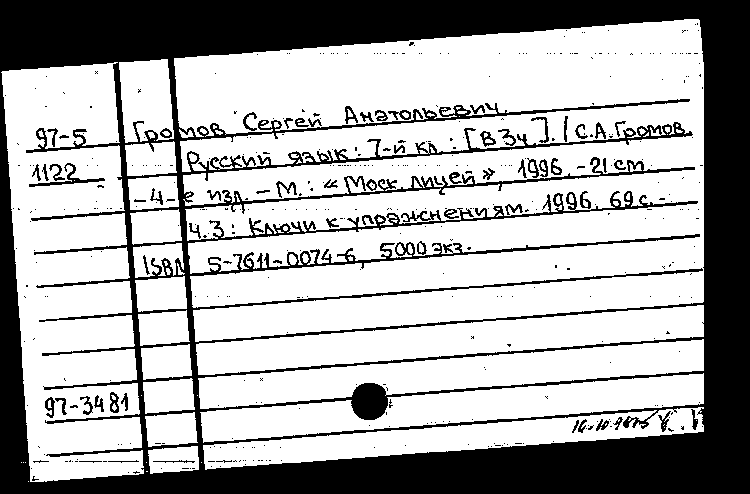 97-5 Громов, Сергей Анатольевич.
1122 Русский язык: 7-й кл.: [В 3ч]. / С.А. Громов.
-4-е изд. - М.: «Моск. лицей», 1996. - 21 cm.
Ч.3: Ключи к упражнениям. 1996. 69 с. -
ISBN 5-7611-0074-6, 5000 экз.
97-3481